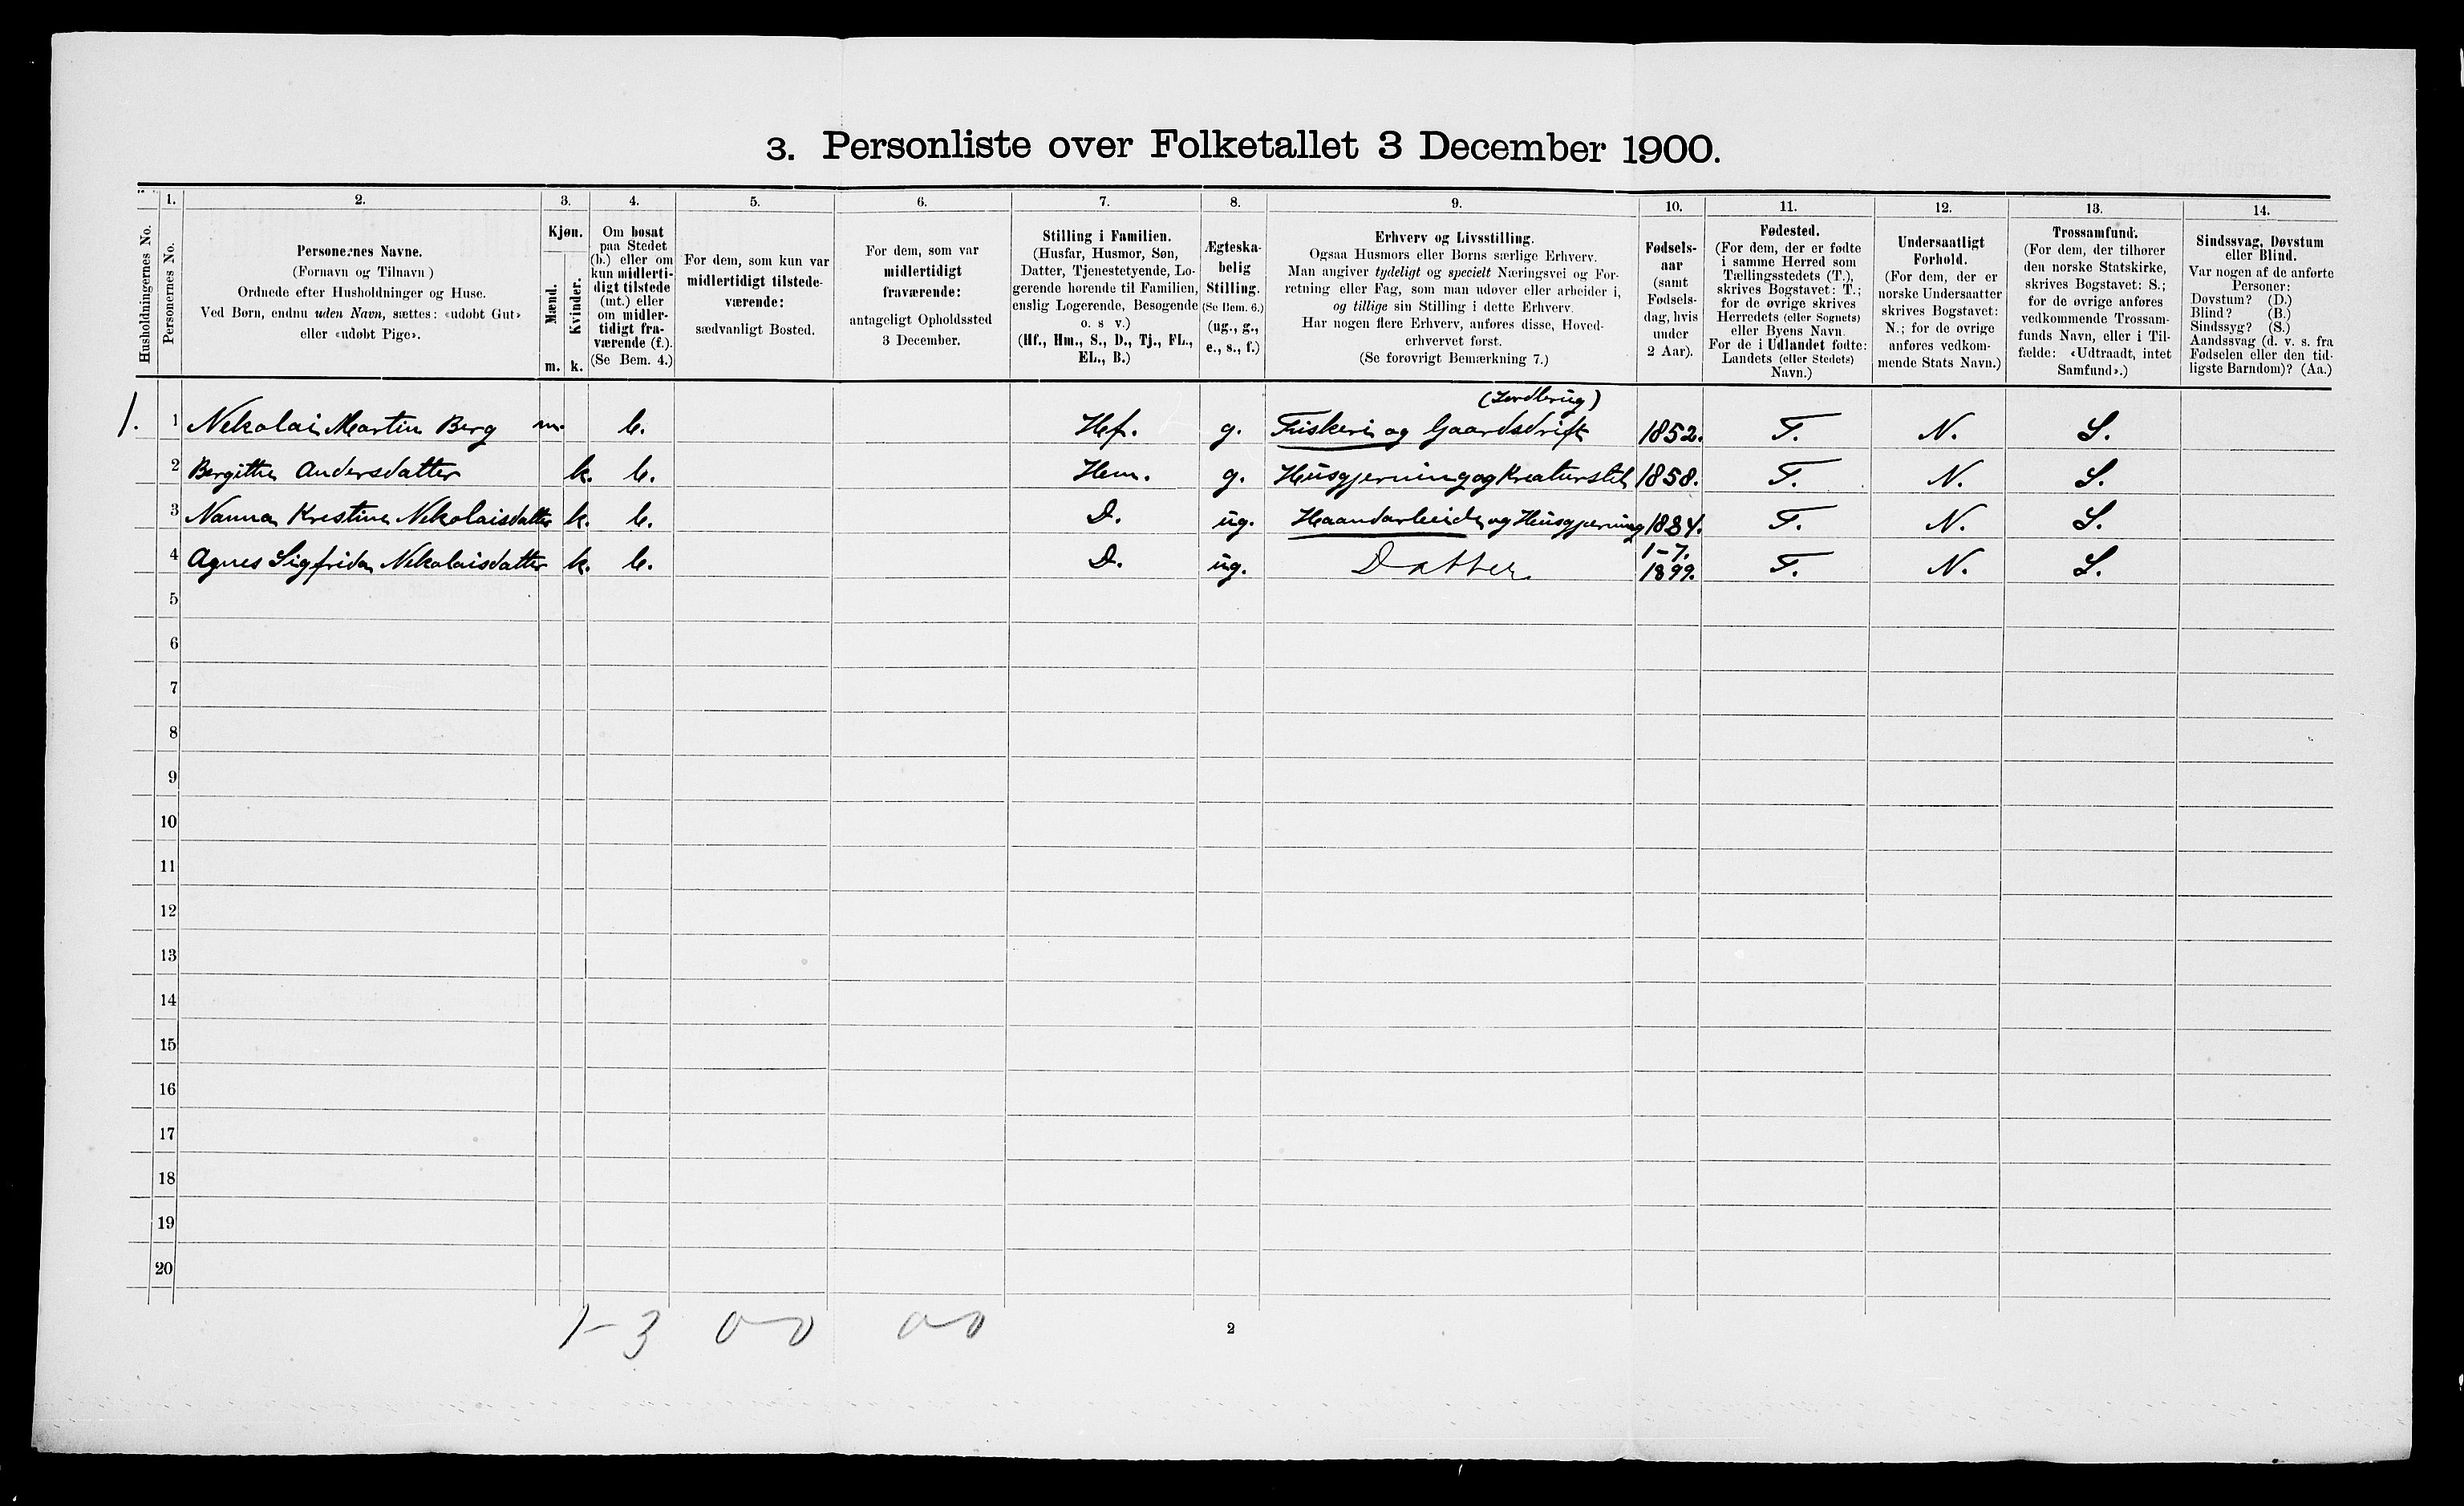 3. Personliste over Folketallet 3 December 1900.
1. 2. 3. 4. 5. 6. 7. 8. 9. 10. 11. 12. 13. 14.
Husholdningernes No.
Personernes No.
Personernes Navne.
(Fornavn og Tilnavn)
Ordnede efter Husholdninger og Huse.
Ved Børn, endnu uden Navn, sættes: «udøbt Gut»
eller «udøbt Pige».
Kjøn.
Mænd.
Kvinder.
m. k.
Om bosat
paa Stedet
(b.) eller om
kun midlerti-
digt tilstede
(mt.) eller
om midler-
tidigt fra-
værende (f.).
(Se Bem. 4.)
For dem, som kun var
midlertidigt tilstede-
værende:
sædvanligt Bosted.
For dem, som var
midlertidigt
fraværende:
antageligt Opholdssted
3 December.
Stilling i Familien.
(Husfar, Husmor, Søn,
Datter, Tjenestetyende, Lo-
gerende hørende til Familien,
enslig Logerende, Besøgende
o. s v.)
(Hf., Hm., S., D., Tj., FL.,
EL., B.)
Ægteska-
belig
Stilling.
(Se Bem. 6.)
(ug., g.,
e., s., f.)
Erhverv og Livsstilling.
Ogsaa Husmors eller Børns særlige Erhverv.
Man angiver tydeligt og specielt Næringsvei og For-
retning eller Fag, som man udøver eller arbeider i,
og tillige sin Stilling i dette Erhverv.
Har nogen flere Erhverv, anføres disse, Hoved-
erhvervet først.
(Se forøvrigt Bemærkning 7.)
Fødsels-
aar
(samt
Fødsels-
dag, hvis
under
2 Aar).
Fødested.
(For dem, der er fødte
i samme Herred som
Tællingsstedets (T.),
skrives Bogstavet: T.;
for de øvrige skrives
Herredets (eller Sognets)
eller Byens Navn.
For de i Udlandet fødte:
Landets (eller Stedets)
Navn.)
Undersaatligt
Forhold.
(For dem, der er
norske Undersaatter
skrives Bogstavet:
N.; for de øvrige
anføres vedkom-
mende Stats Navn.)
Trossamfund.
(For dem, der tilhører
den norske Statskirke,
skrives Bogstavet: S.;
for de øvrige anføres
vedkommende Trossam-
funds Navn, eller i Til-
fælde: «Udtraadt, intet
Samfund».)
Sindssvag, Døvstum
eller Blind.
Var nogen af de anførte
Personer:
Døvstum? (D.)
Blind? (B.)
Sindssyg? (S.)
Aandssvag (d. v. s. fra
Fødselen eller den tid-
ligste Barndom)? (Aa.)
(Jordbrug)
1. 1 Nekolai Martin Berg m. b. Hf. g. Fiskeri og Gaardsdrift 1852. T. N. S.
2 Bergitha Andersdatter k. b. Hm. g. Husgjerning og Kreaturstel 1858. T. N. S.
3 Nanna Krestine Nekolaisdatter k. b. D. ug. Haandarbeide og Husgjerning 1884. T. N. S.
1-7.
4 Agnes Sigfrida Nekolaisdatter k. b. D. ug. Datter 1899. T. N. S.
5
6
7
8
9
10
11
12
13
14
15
16
17
18
19
20
1-3 0-0 0-0
2